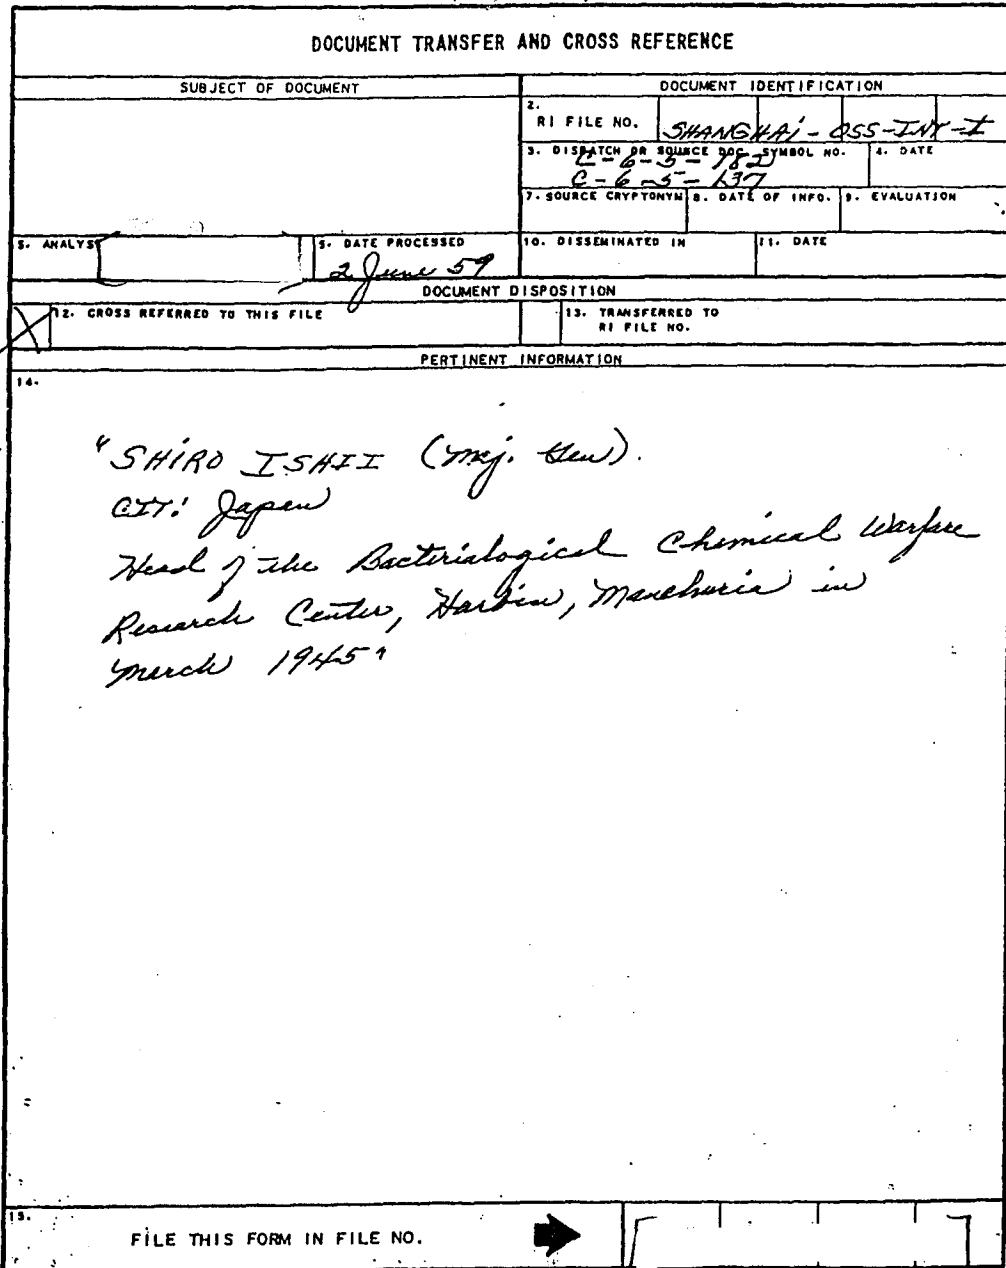 DOCUMENT TRANSFER AND CROSS REFERENCE
SUBJECT OF DOCUMENT
DOCUMENT IDENTIFICATION
2.
RI FILE NO. SHANGHAI - OSS-INT-I
3. DISPATCH OR SOURCE DOC. SYMBOL NO.
C-6-5-182
C-6-5-137
4. DATE
7. SOURCE CRYPTONYM
8. DATE OF INFO.
9. EVALUATION
5. ANALYST
5. DATE PROCESSED
2 June 59
10. DISSEMINATED IN
11. DATE
DOCUMENT DISPOSITION
X 12. CROSS REFERRED TO THIS FILE
13. TRANSFERRED TO
RI FILE NO.
PERTINENT INFORMATION
14.
"SHIRO ISHII (Maj. Gen).
CIT: Japan
Head of the Bacterialogical Chemical Warfare
Research Center, Harbin, Manchuria in
March 1945"
15.
FILE THIS FORM IN FILE NO.